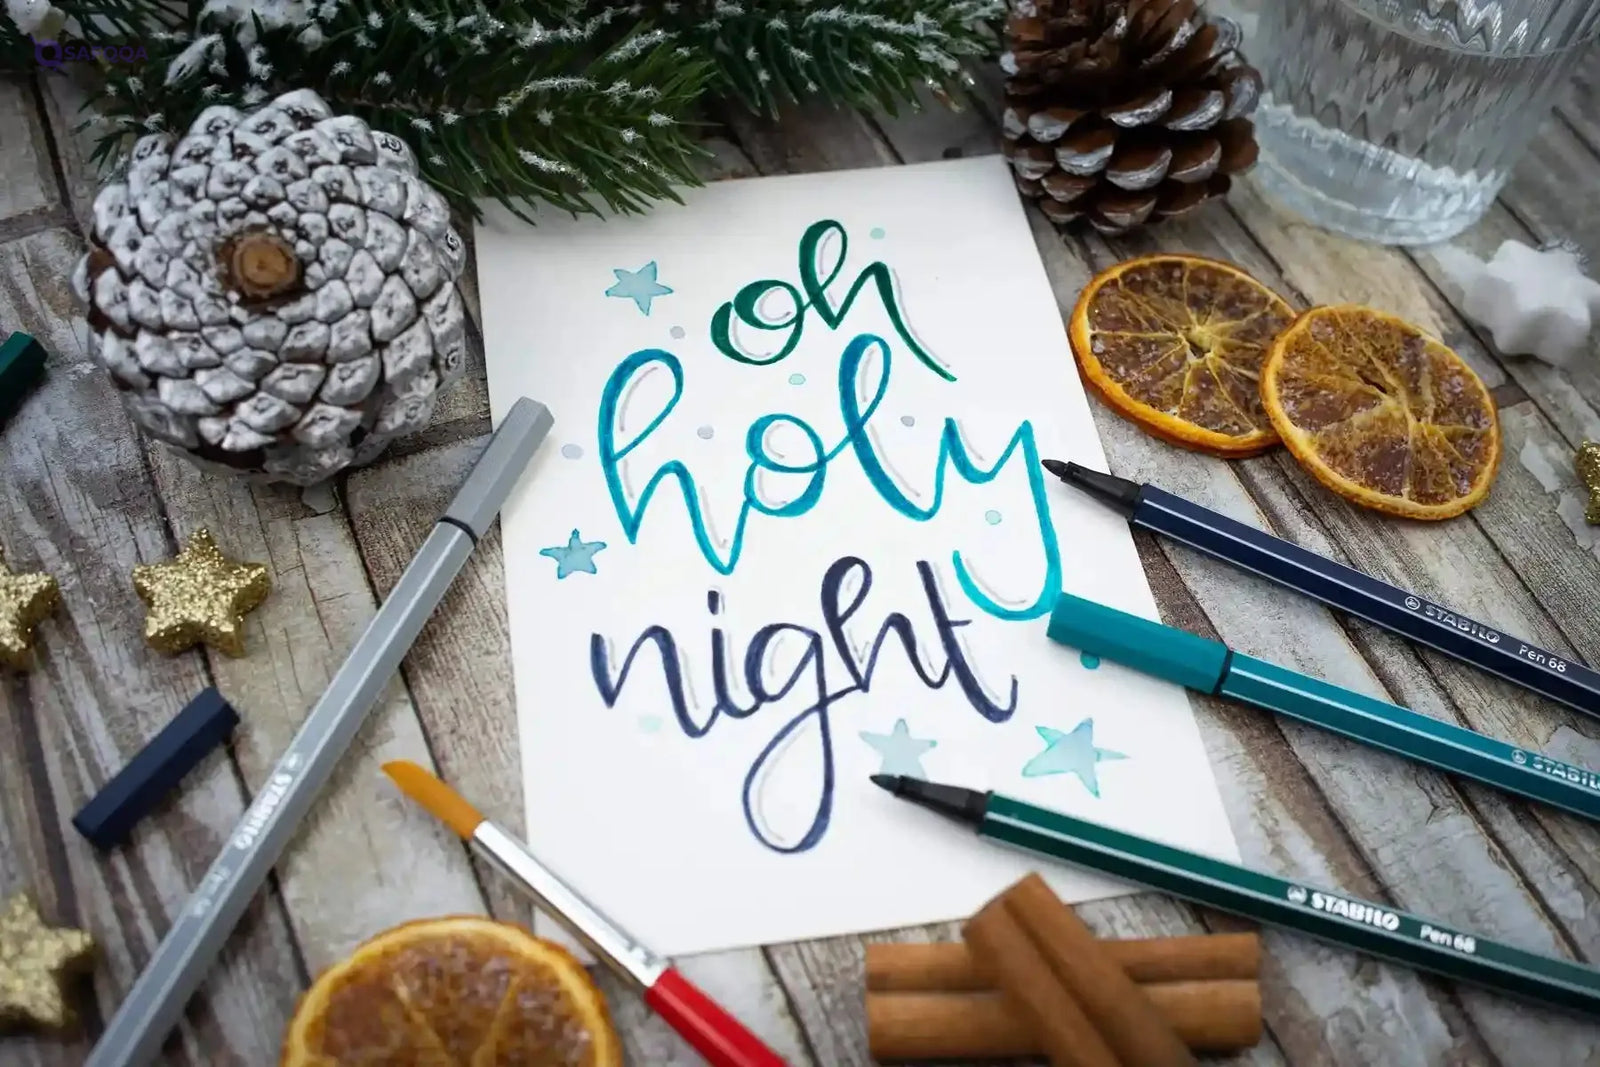 SAFOQA
oh
holy
night
STABILO Pen 68
STABILO
STABILO Pen 68
STABILO Pen 68